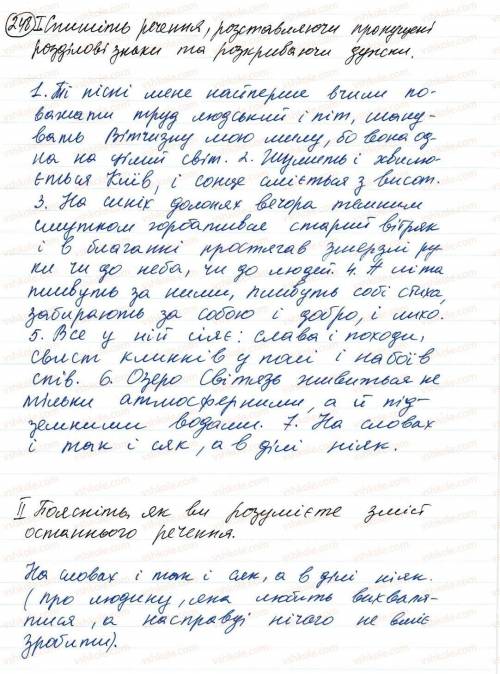 248 I Спишіть речення, розставляючи пропущені
розділові знаки та розкриваючи дужки.
1. Ті пісні мене найперше вчили по-
важати труд людський і піт, шану-
вать Вітчизну мою милу, бо вона од-
на на цілий світ. 2. Шумить і хвилю-
ється Київ, і сонце сміється з висот.
3. На синіх долонях вечора темним
смутком горбативсе старий вітряк
і в благанні простягав змерзлі ру-
ки чи до неба, чи до людей. 4. А літа
пливуть за ними, пливуть собі стиха,
забирають за собою і добро, і лихо.
5. Все у ній сіяє: слава і походи,
свист клинків у полі і набоїв
спів. 6. Озеро Світязь живиться не
тільки атмосферними, а й під-
земними водами. 7. На словах
і так і сяк, а в ділі ніяк.
II Поясніть, як ви розумієте зміст
останнього речення.
На словах і так і сяк, а в ділі ніяк.
(про людину, яка любить вихваля-
тися, а насправді нічого не вміє
зробити).